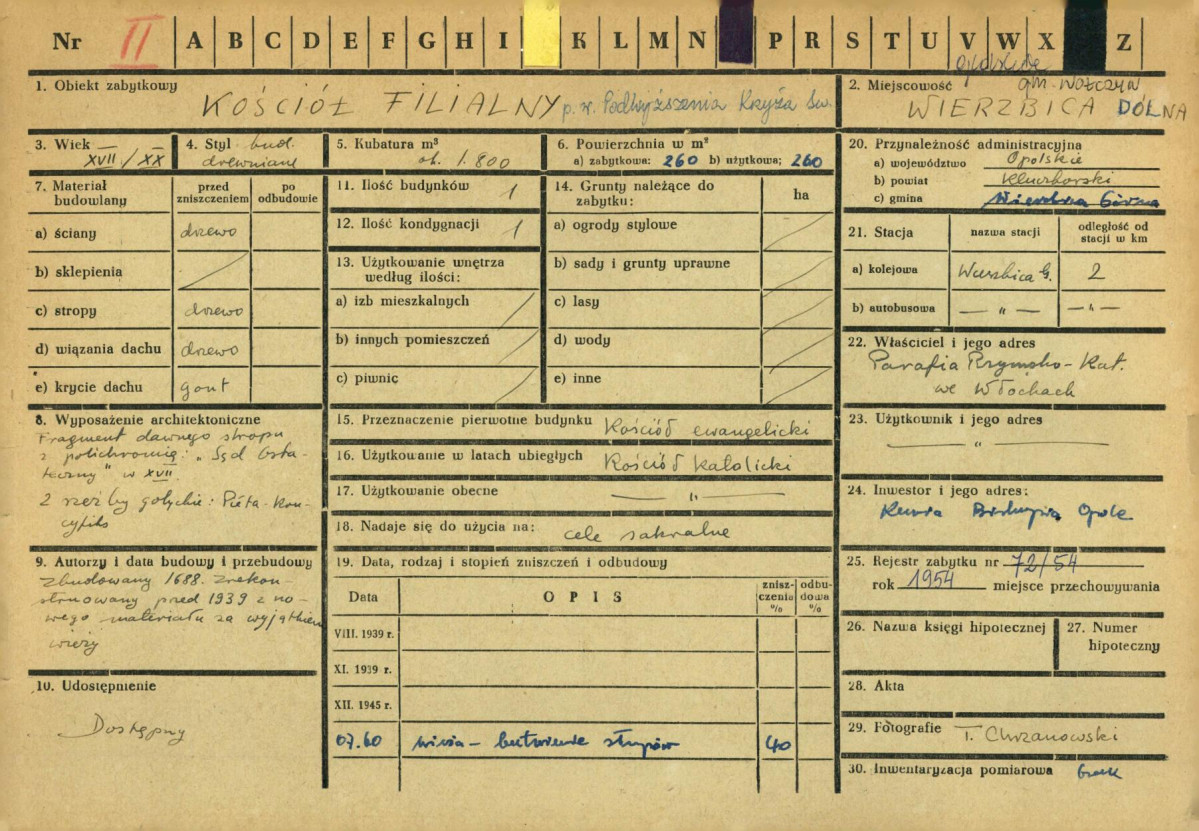 Nr II A B C D E F G H I K L M N P R S T U V W X Z
1. Obiekt zabytkowy
KOŚCIÓŁ FILIALNY p. w. Podwyższenia Krzyża Św.
2. Miejscowość
gm. WOŁCZYN
WIERZBICA DÓLNA
3. Wiek
XVII/XX
4. Styl bud.
drewniane
5. Kubatura m³
ok. 1.800
6. Powierzchnia w m²
a) zabytkowa: 260 b) użytkowa; 260
7. Materiał budowlany
przed zniszczeniem
po odbudowie
a) ściany drzewo
b) sklepienia
c) stropy drzewo
d) wiązania dachu drzewo
e) krycie dachu gont
8. Wyposażenie architektoniczne
Fragment dawnego stropu
z polichromią: "Sąd Osta-
teczny" w XVII.
2 rzeźby gotyckie: Pieta-
9. Autorzy i data budowy i przebudowy
Zbudowany 1688. zrekon-
struowany przed 1939 z no-
wego materiału za wyjątkiem
wieży
10. Udostępnienie
Dostępny
11. Ilość budynków 1
12. Ilość kondygnacji 1
13. Użytkowanie wnętrza
według ilości:
a) izb mieszkalnych
b) innych pomieszczeń
c) piwnic
14. Grunty należące do
zabytku:
ha
a) ogrody stylowe
b) sady i grunty uprawne
c) lasy
d) wody
e) inne
15. Przeznaczenie pierwotne budynku Kościół ewangelicki
16. Użytkowanie w latach ubiegłych Kościół katolicki
17. Użytkowanie obecne — " —
18. Nadaje się do użycia na: cele sakralne
19. Data, rodzaj i stopień zniszczeń i odbudowy
Data
OPIS
znisz-
czenia
%
odbu-
dowa
%
VIII. 1939 r.
XI. 1939 r.
XII. 1945 r.
07.60 wieża - butwienie słupów 40
20. Przynależność administracyjna
a) województwo Opolskie
b) powiat Kluczborski
c) gmina Wierzbica Górna
21. Stacja
nazwa stacji
odległość od
stacji w km
a) kolejowa Wierzbica G. 2
b) autobusowa — " — — " —
22. Właściciel i jego adres
Parafia Rzymsko-Kat.
we Włochach
23. Użytkownik i jego adres
— " —
24. Inwestor i jego adres:
Kuria Biskupia Opole
25. Rejestr zabytku nr 72/54
rok 1954 miejsce przechowywania
26. Nazwa księgi hipotecznej
27. Numer
hipoteczny
28. Akta
29. Fotografie T. Chrzanowski
30. Inwentaryzacja pomiarowa brak